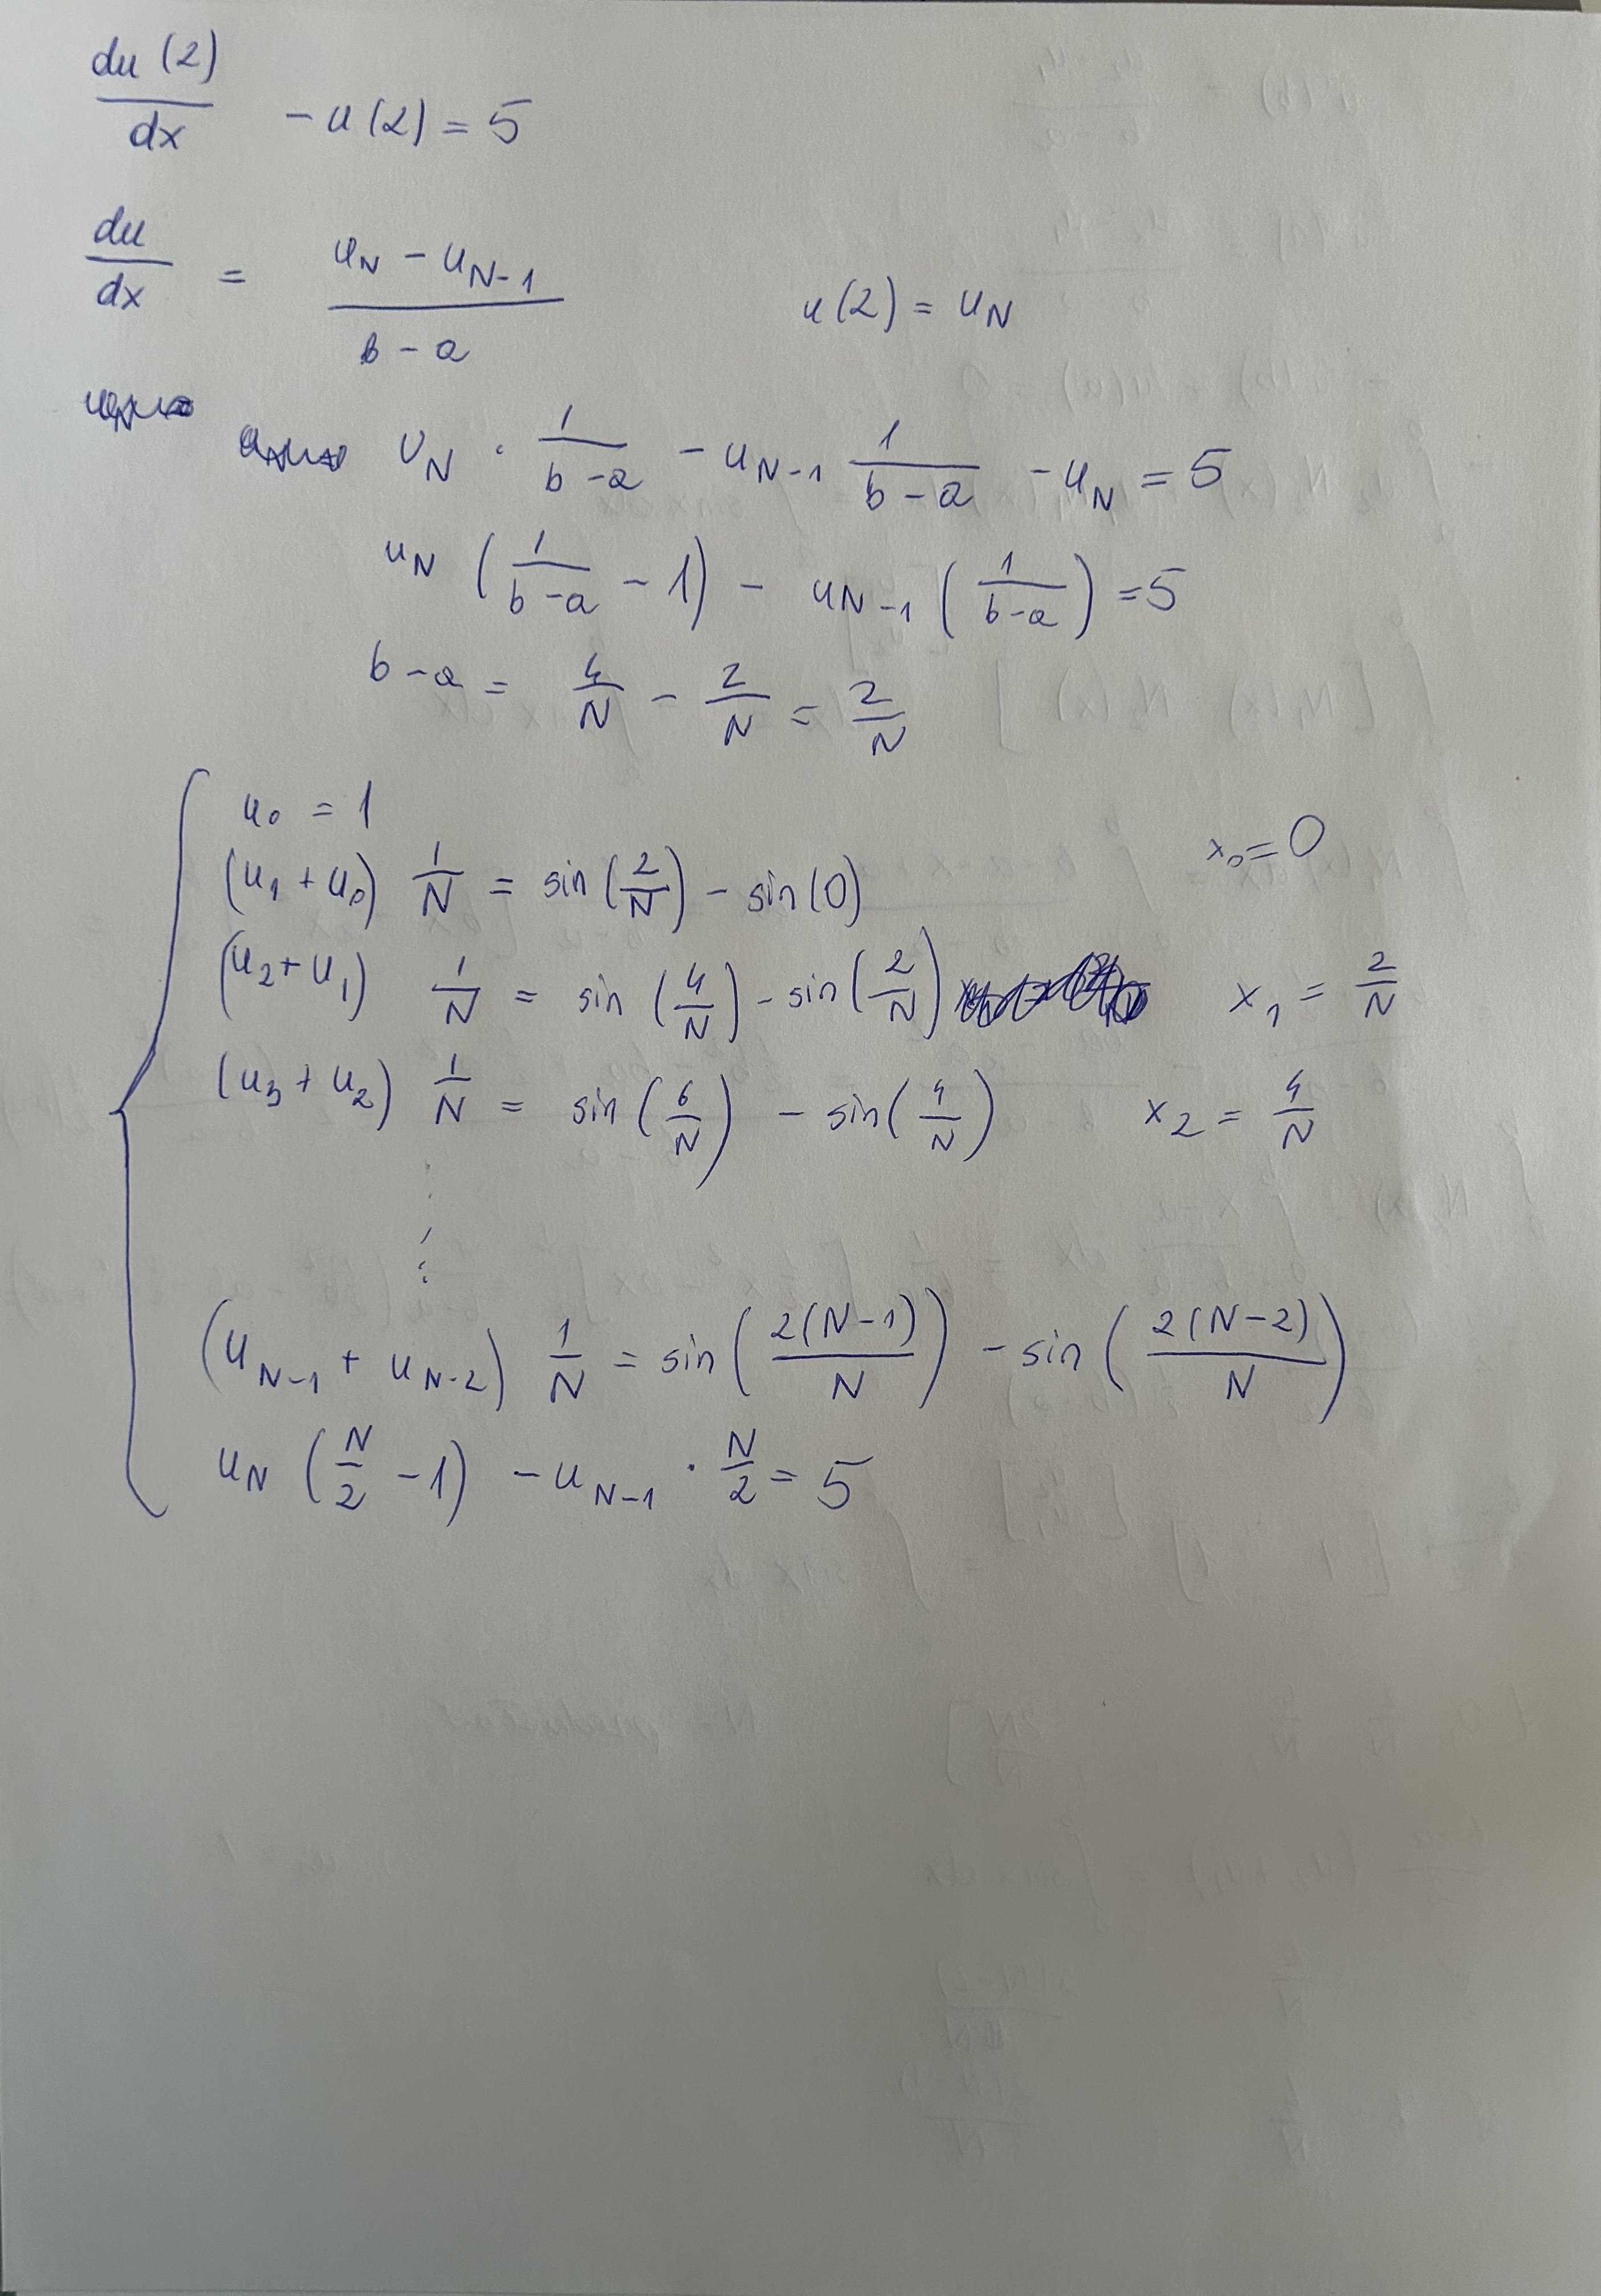 du(2)/dx - u(2) = 5
du/dx = (u_N - u_{N-1})/(b - a)    u(2) = u_N
u_N · 1/(b - a) - u_{N-1} 1/(b - a) - u_N = 5
u_N (1/(b - a) - 1) - u_{N-1} (1/(b - a)) = 5
b - a = 4/N - 2/N = 2/N
u_0 = 1
(u_1 + u_0) 1/N = sin(2/N) - sin(0)    x_0 = 0
(u_2 + u_1) 1/N = sin(4/N) - sin(2/N)    x_1 = 2/N
(u_3 + u_2) 1/N = sin(6/N) - sin(4/N)    x_2 = 4/N
⋮
(u_{N-1} + u_{N-2}) 1/N = sin(2(N-1)/N) - sin(2(N-2)/N)
u_N (N/2 - 1) - u_{N-1} · N/2 = 5